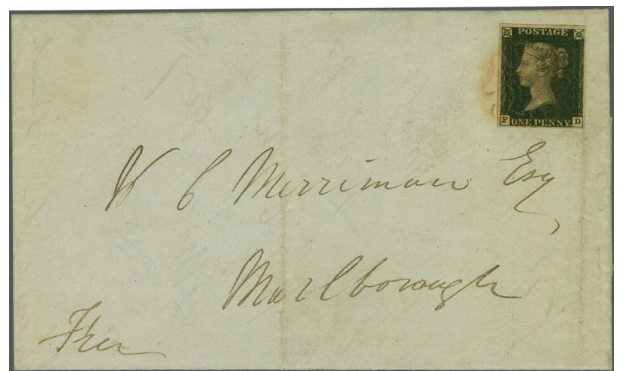 POSTAGE
F D
ONE PENNY
Merriman Esq
Marlborough